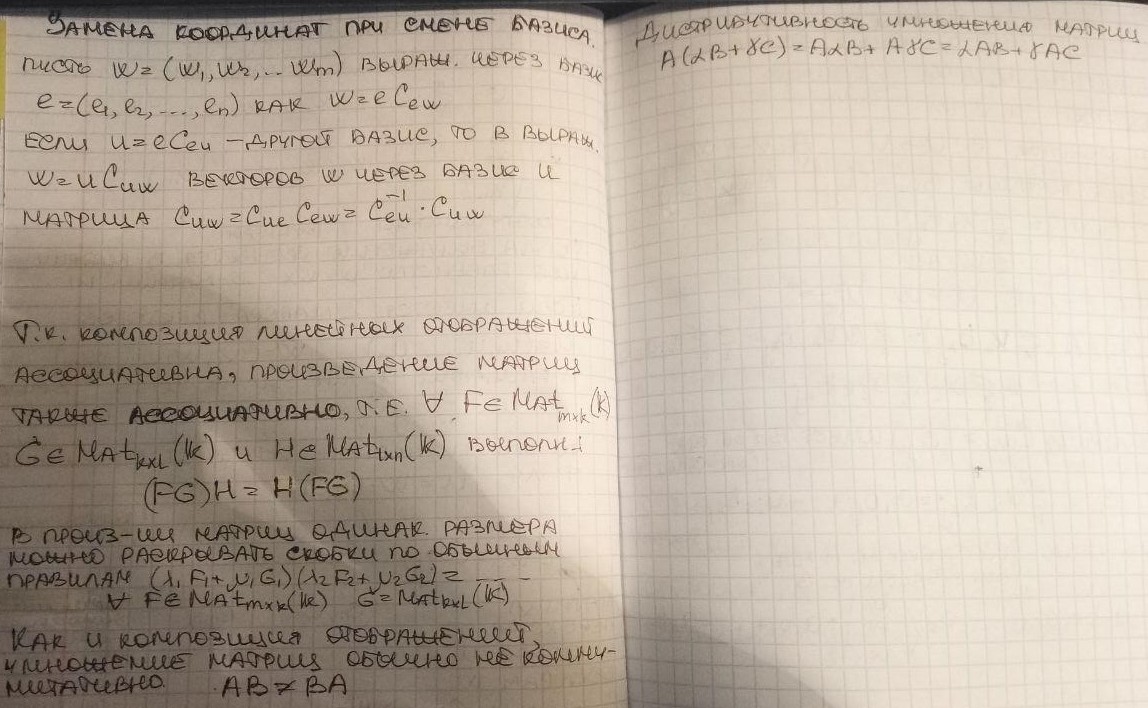 ЗАМЕНА КООРДИНАТ ПРИ СМЕНЕ БАЗИСА.
ПУСТЬ w = (w₁, w₂, .. wₘ) ВЫРАЖ. ЧЕРЕЗ БАЗИС
e = (e₁, e₂, ..., eₙ) КАК w = e C_ew
ЕСЛИ u = e C_eu – ДРУГОЙ БАЗИС, ТО В ВЫРАЖ.
w = u C_uw ВЕКТОРОВ w ЧЕРЕЗ БАЗИС u
МАТРИЦА C_uw = C_ue C_ew = C_eu⁻¹ · C_uw
Т.К. КОМПОЗИЦИЯ ЛИНЕЙНЫХ ОТОБРАЖЕНИЙ
АССОЦИАТИВНА, ПРОИЗВЕДЕНИЕ МАТРИЦ
ТАКЖЕ АССОЦИАТИВНО, Т.Е. ∀ F ∈ Mat_m×k(k)
G ∈ Mat_k×l(k) и H ∈ Mat_l×n(k) ВЫПОЛН.
(FG)H = H(FG)
В ПРОИЗ-ИИ МАТРИЦ ОДИНАК. РАЗМЕРА
МОЖНО РАСКРЫВАТЬ СКОБКИ ПО ОБЫЧНЫМ
ПРАВИЛАМ (λ₁F₁ + μ₁G₁)(λ₂F₂ + μ₂G₂) = ___
∀ F ∈ Mat_m×k(k) G = Mat_k×l(k)
КАК И КОМПОЗИЦИЯ ОТОБРАЖЕНИЙ,
УМНОЖЕНИЕ МАТРИЦ ОБЫЧНО НЕ КОММУ-
МИТАТИВНО. AB ≠ BA
ДИСТРИБУТИВНОСТЬ УМНОЖЕНИЯ МАТРИЦ
A(αB + γC) = AαB + AγC = αAB + γAC